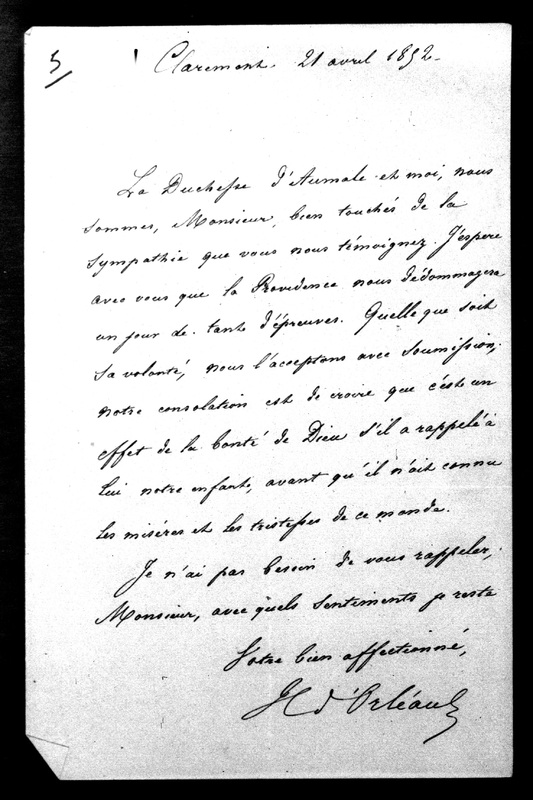 5
Claremont. 21 avril 1852.
La Duchesse d'Aumale et moi, nous
sommes, Monsieur, bien touchés de la
sympathie que vous nous témoignez. J'espère
avec vous que la Providence nous dédommagera
un jour de tant d'épreuves. Quelle que soit
sa volonté, nous l'acceptons avec soumission;
notre consolation est de croire que c'est un
effet de la bonté de Dieu s'il a rappelé à
lui notre enfant, avant qu'il n'ait connu
les misères et les tristesses de ce monde.
Je n'ai pas besoin de vous rappeler,
Monsieur, avec quels sentiments je reste
Votre bien affectionné,
H d'Orléans